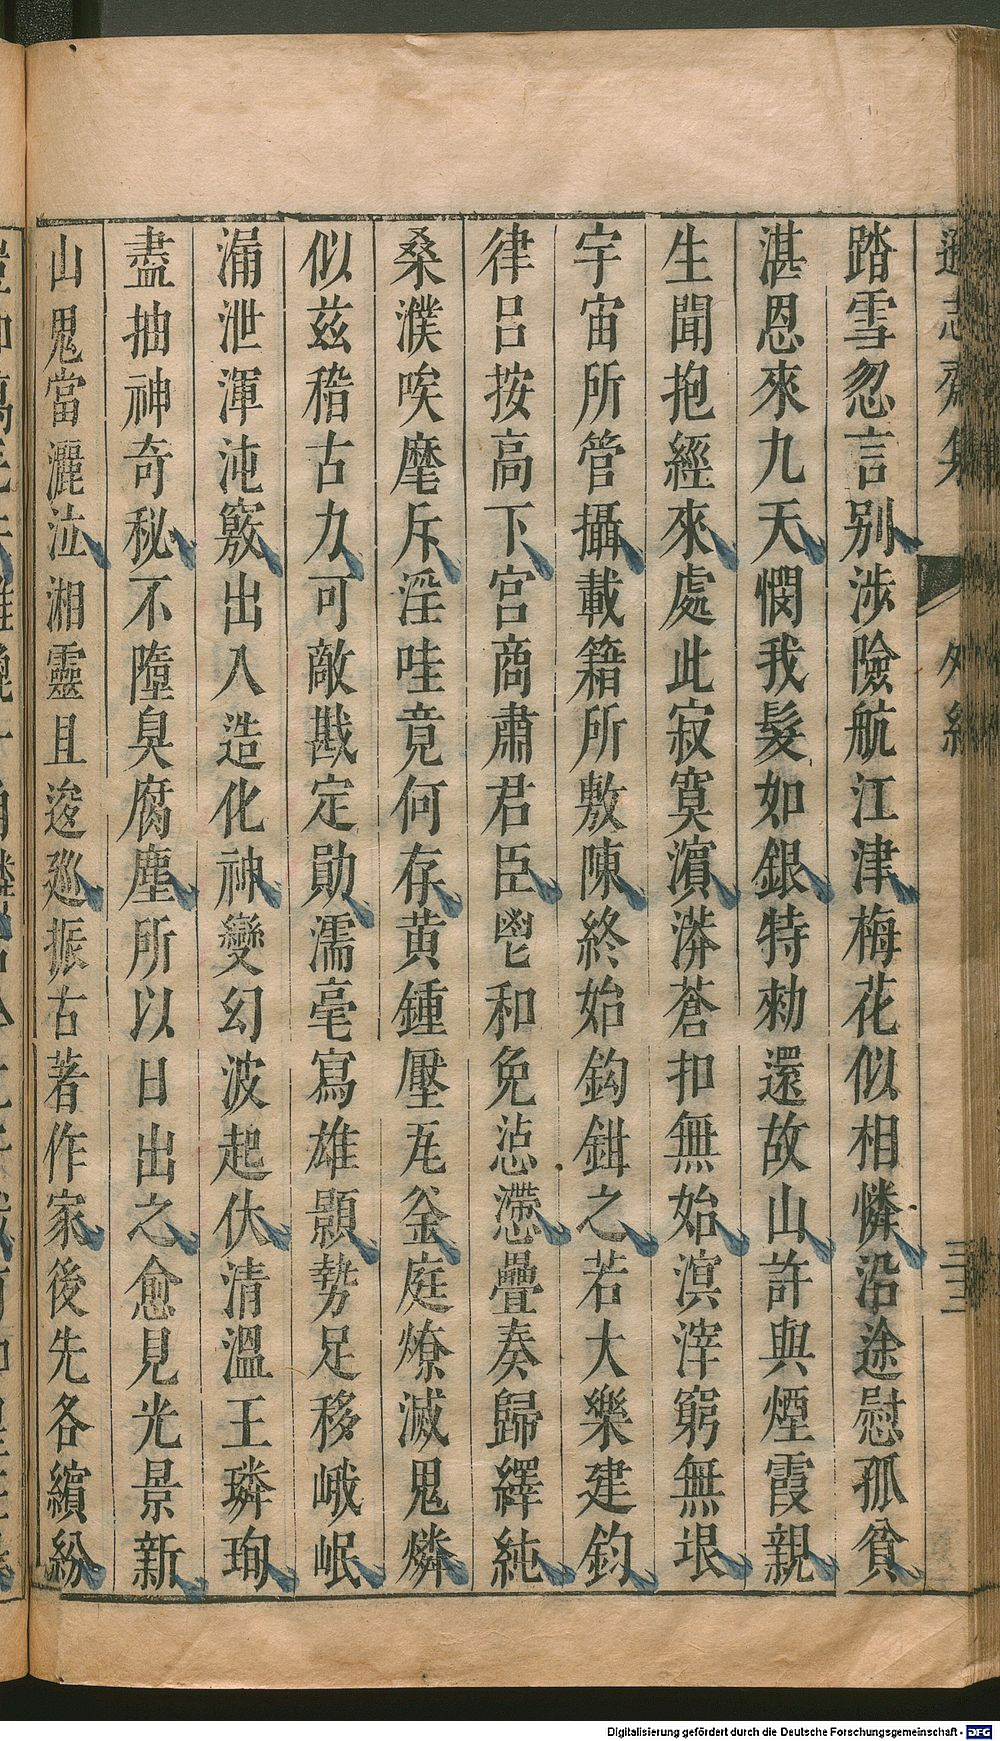 遜志齋集 外紀 三十二
踏雪忽言別涉險航江津梅花似相憐沿途慰孤貧
湛恩來九天憫我髮如銀特勑還故山許與煙霞親
生聞抱經來處此寂寞濵漭蒼扣無始溟涬窮無垠
宇宙所管攝載籍所敷陳終始鈎鉗之若大樂建鈞
律呂按高下宮商肅君臣鬯和免惉懘疊奏歸繹純
桑濮唉麾斥淫哇竟何存黃鍾壓瓦釜庭燎滅鬼燐
似茲稽古力可敵戡定勛濡毫寫雄顥勢足移峨岷
漏泄渾沌竅出入造化神變幻波起伏清溫王璘珣
盡抽神奇秘不墮臭腐塵所以日出之愈見光景新
山鬼當灑泣湘靈且逡巡振古著作家後先各繽紛
Digitalisierung gefördert durch die Deutsche Forschungsgemeinschaft - DFG